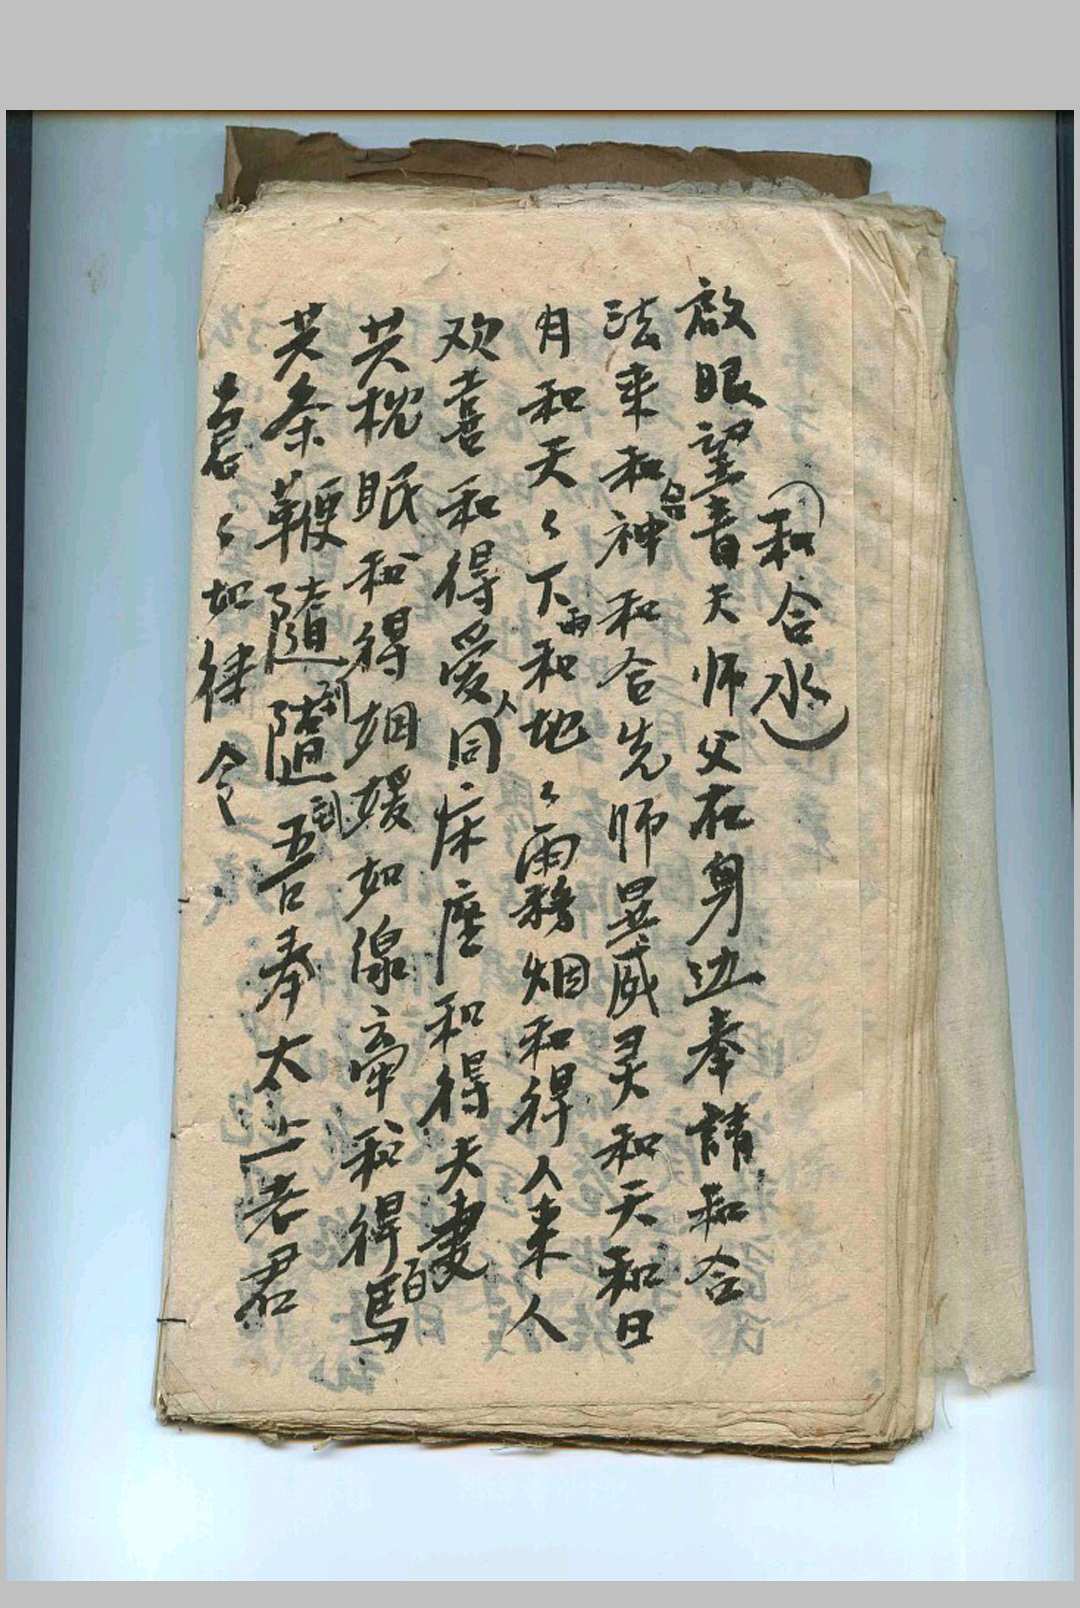 （和合水）
啟眼望青天师父在身边奉請和合
法来和合神和合先师显威灵和天和日
月和天々下雨和地々雨雾烟和得人来人
欢喜和得爱人同床座和得夫妻百日
共枕眠和得姻媛如線牵和得馬
共条鞭隨到隨到吾奉太上老君
急々如律令